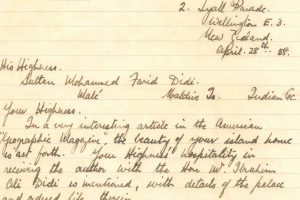 2. Lyall Parade.
Wellington E. 3.
New Zealand.
April. 28th. 58.
His Highness.
Sultan Mohammed Farid Didi.
Malé Maldive Is. Indian Oc.
Your Highness.
In a very interesting article in the American
"Geographic Magazine", the beauty of your island home
is set forth. Your Highness' hospitality in
receiving the author with the Hon. Mr. Ibrahim
Ali Didi is mentioned, with details of the palace
and life therein